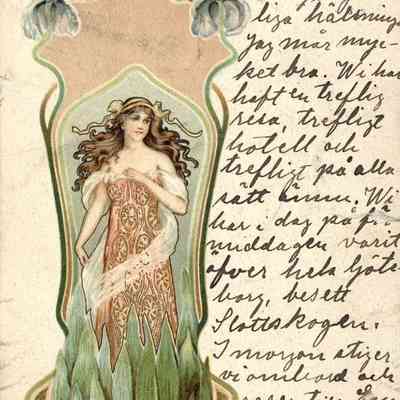 liga hälsninga
Jag mår myc-
ket bra. Wi ha
haft en treflig
resa, trefligt
hotell och
trefligt på alla
sätt ännu. Wi
har i dag på f.
middagen varit
öfver hela Göte-
borg, besett
Slottskogen.
I morgon stiger
vi ombord och